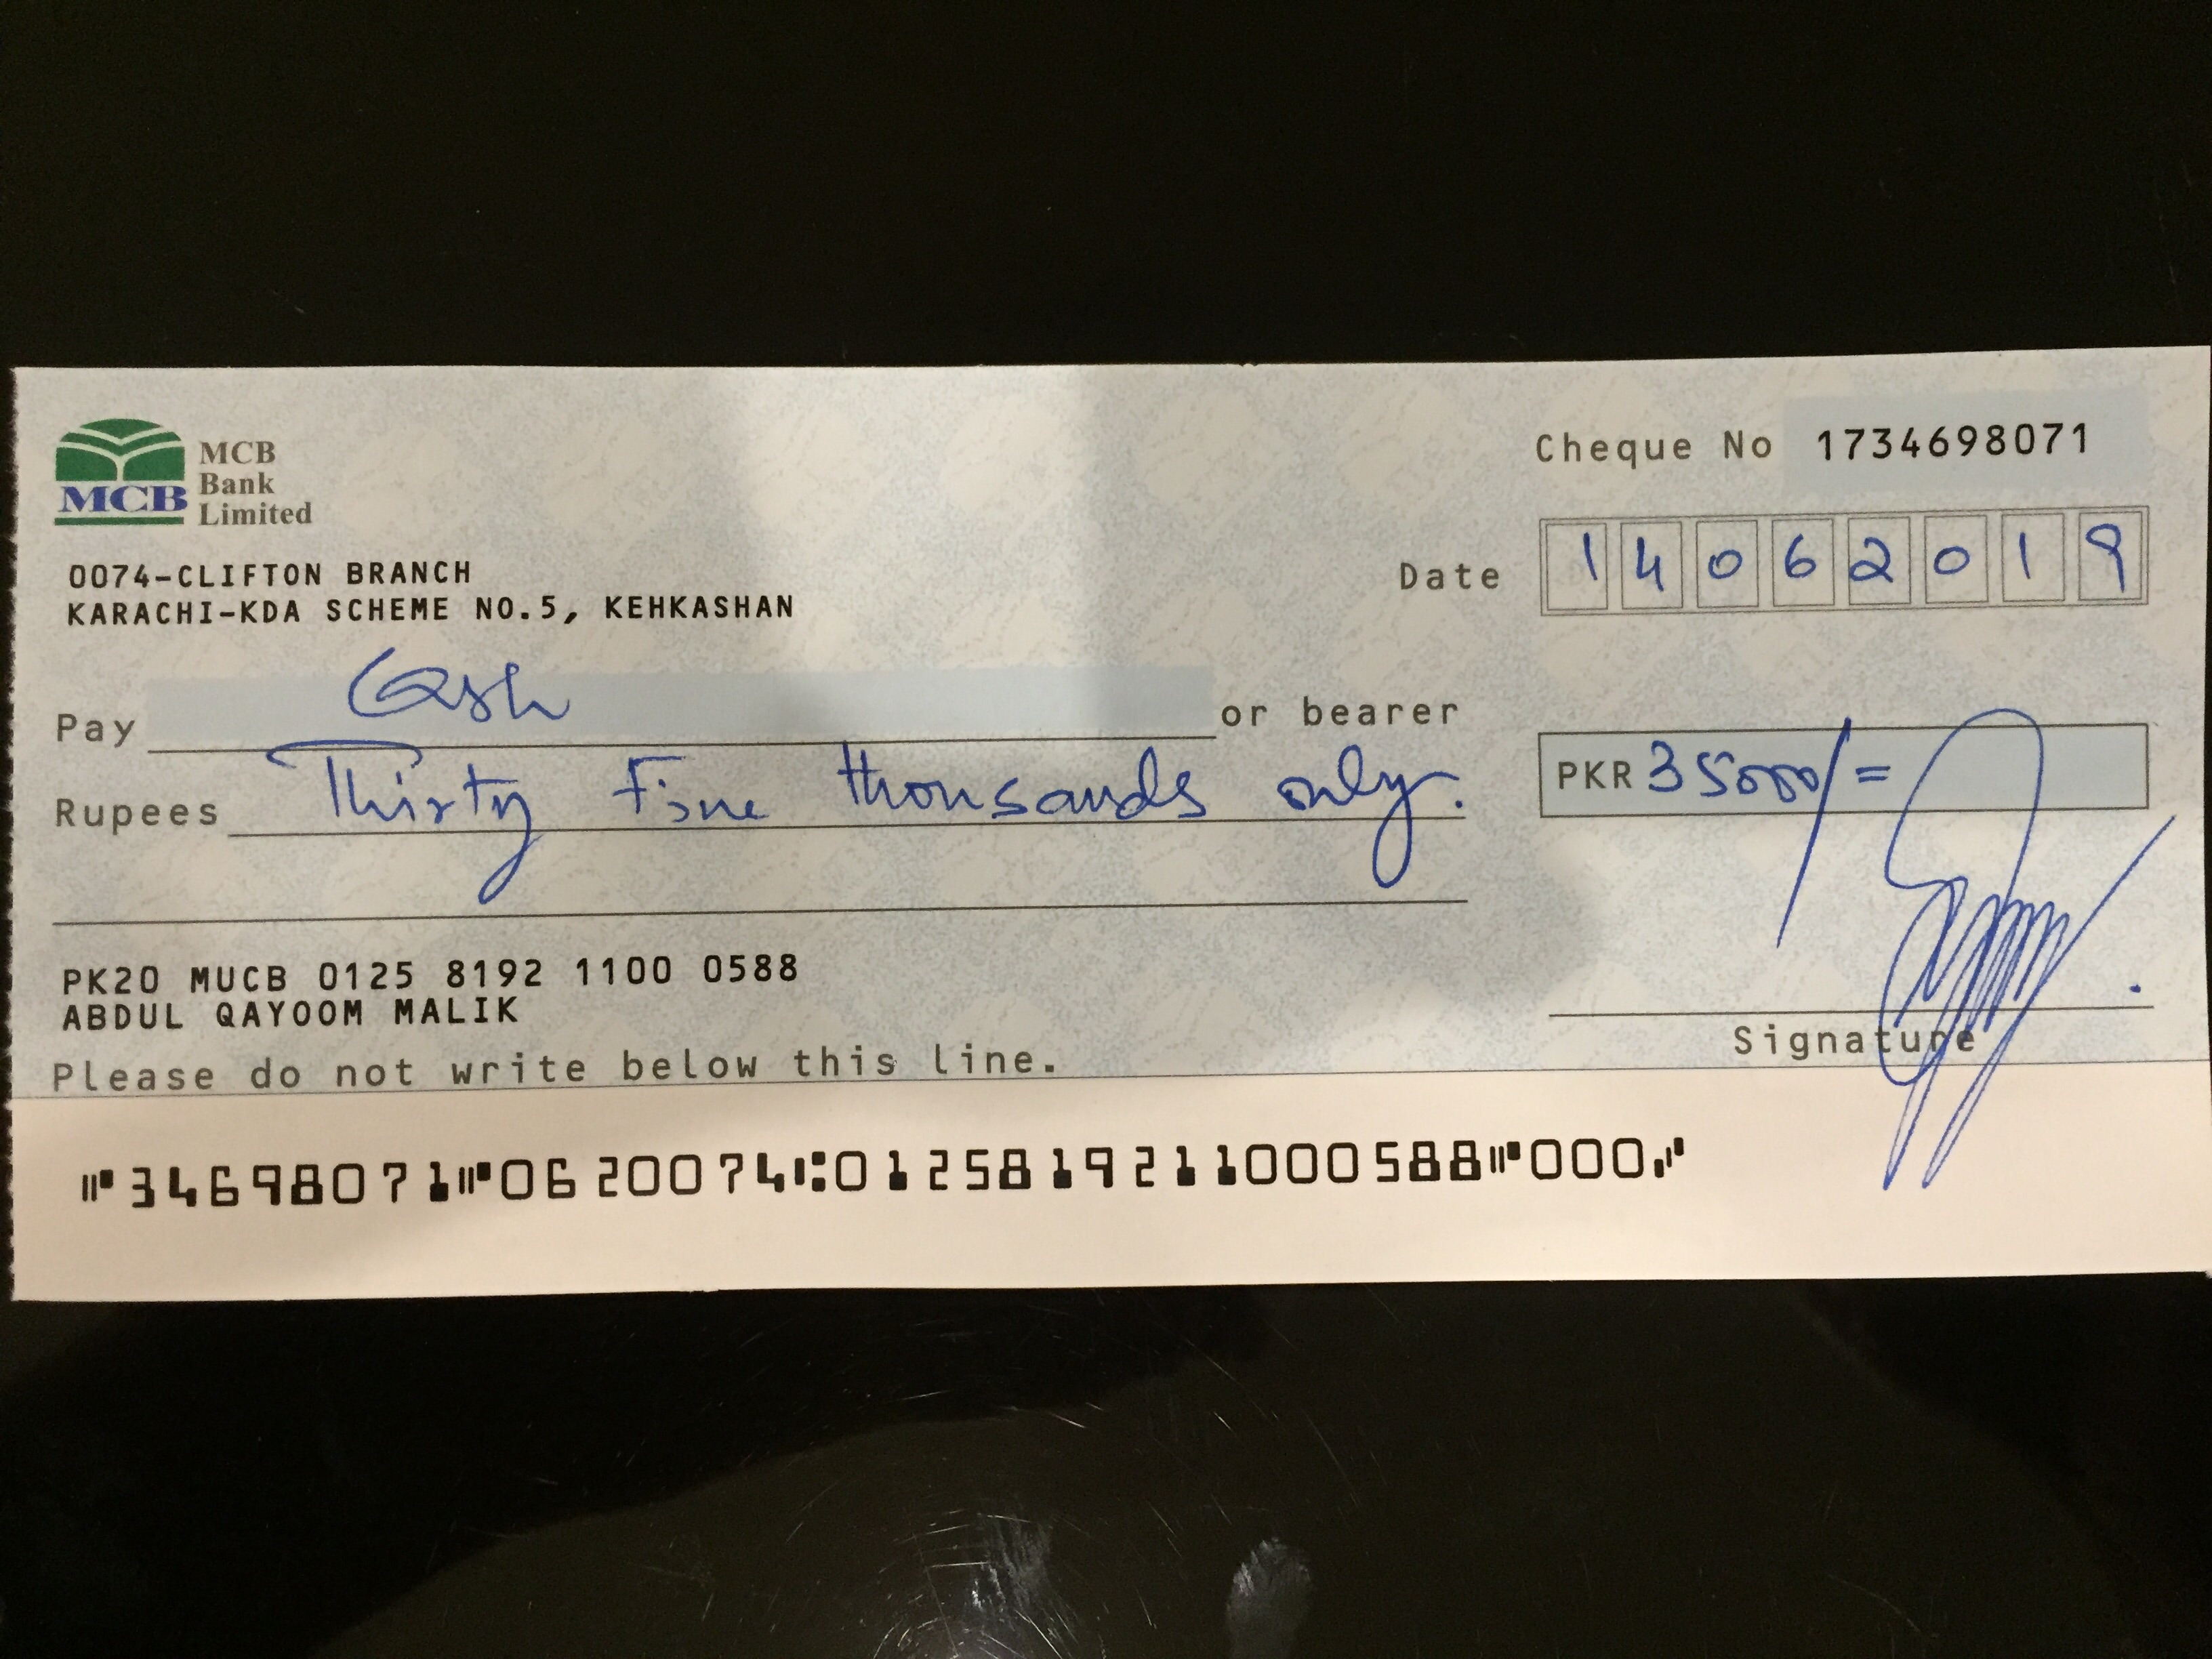 MCB
MCB Bank Limited
0074-CLIFTON BRANCH
KARACHI-KDA SCHEME NO.5, KEHKASHAN
Cheque No 1734698071
Date 14062019
Pay Cash or bearer
Rupees Thirty Five thousands only.
PKR 35000/=
PK20 MUCB 0125 8192 1100 0588
ABDUL QAYOOM MALIK
Signature
Please do not write below this line.
⑈34698071⑈0620074⑆0125819211000588⑈000⑈